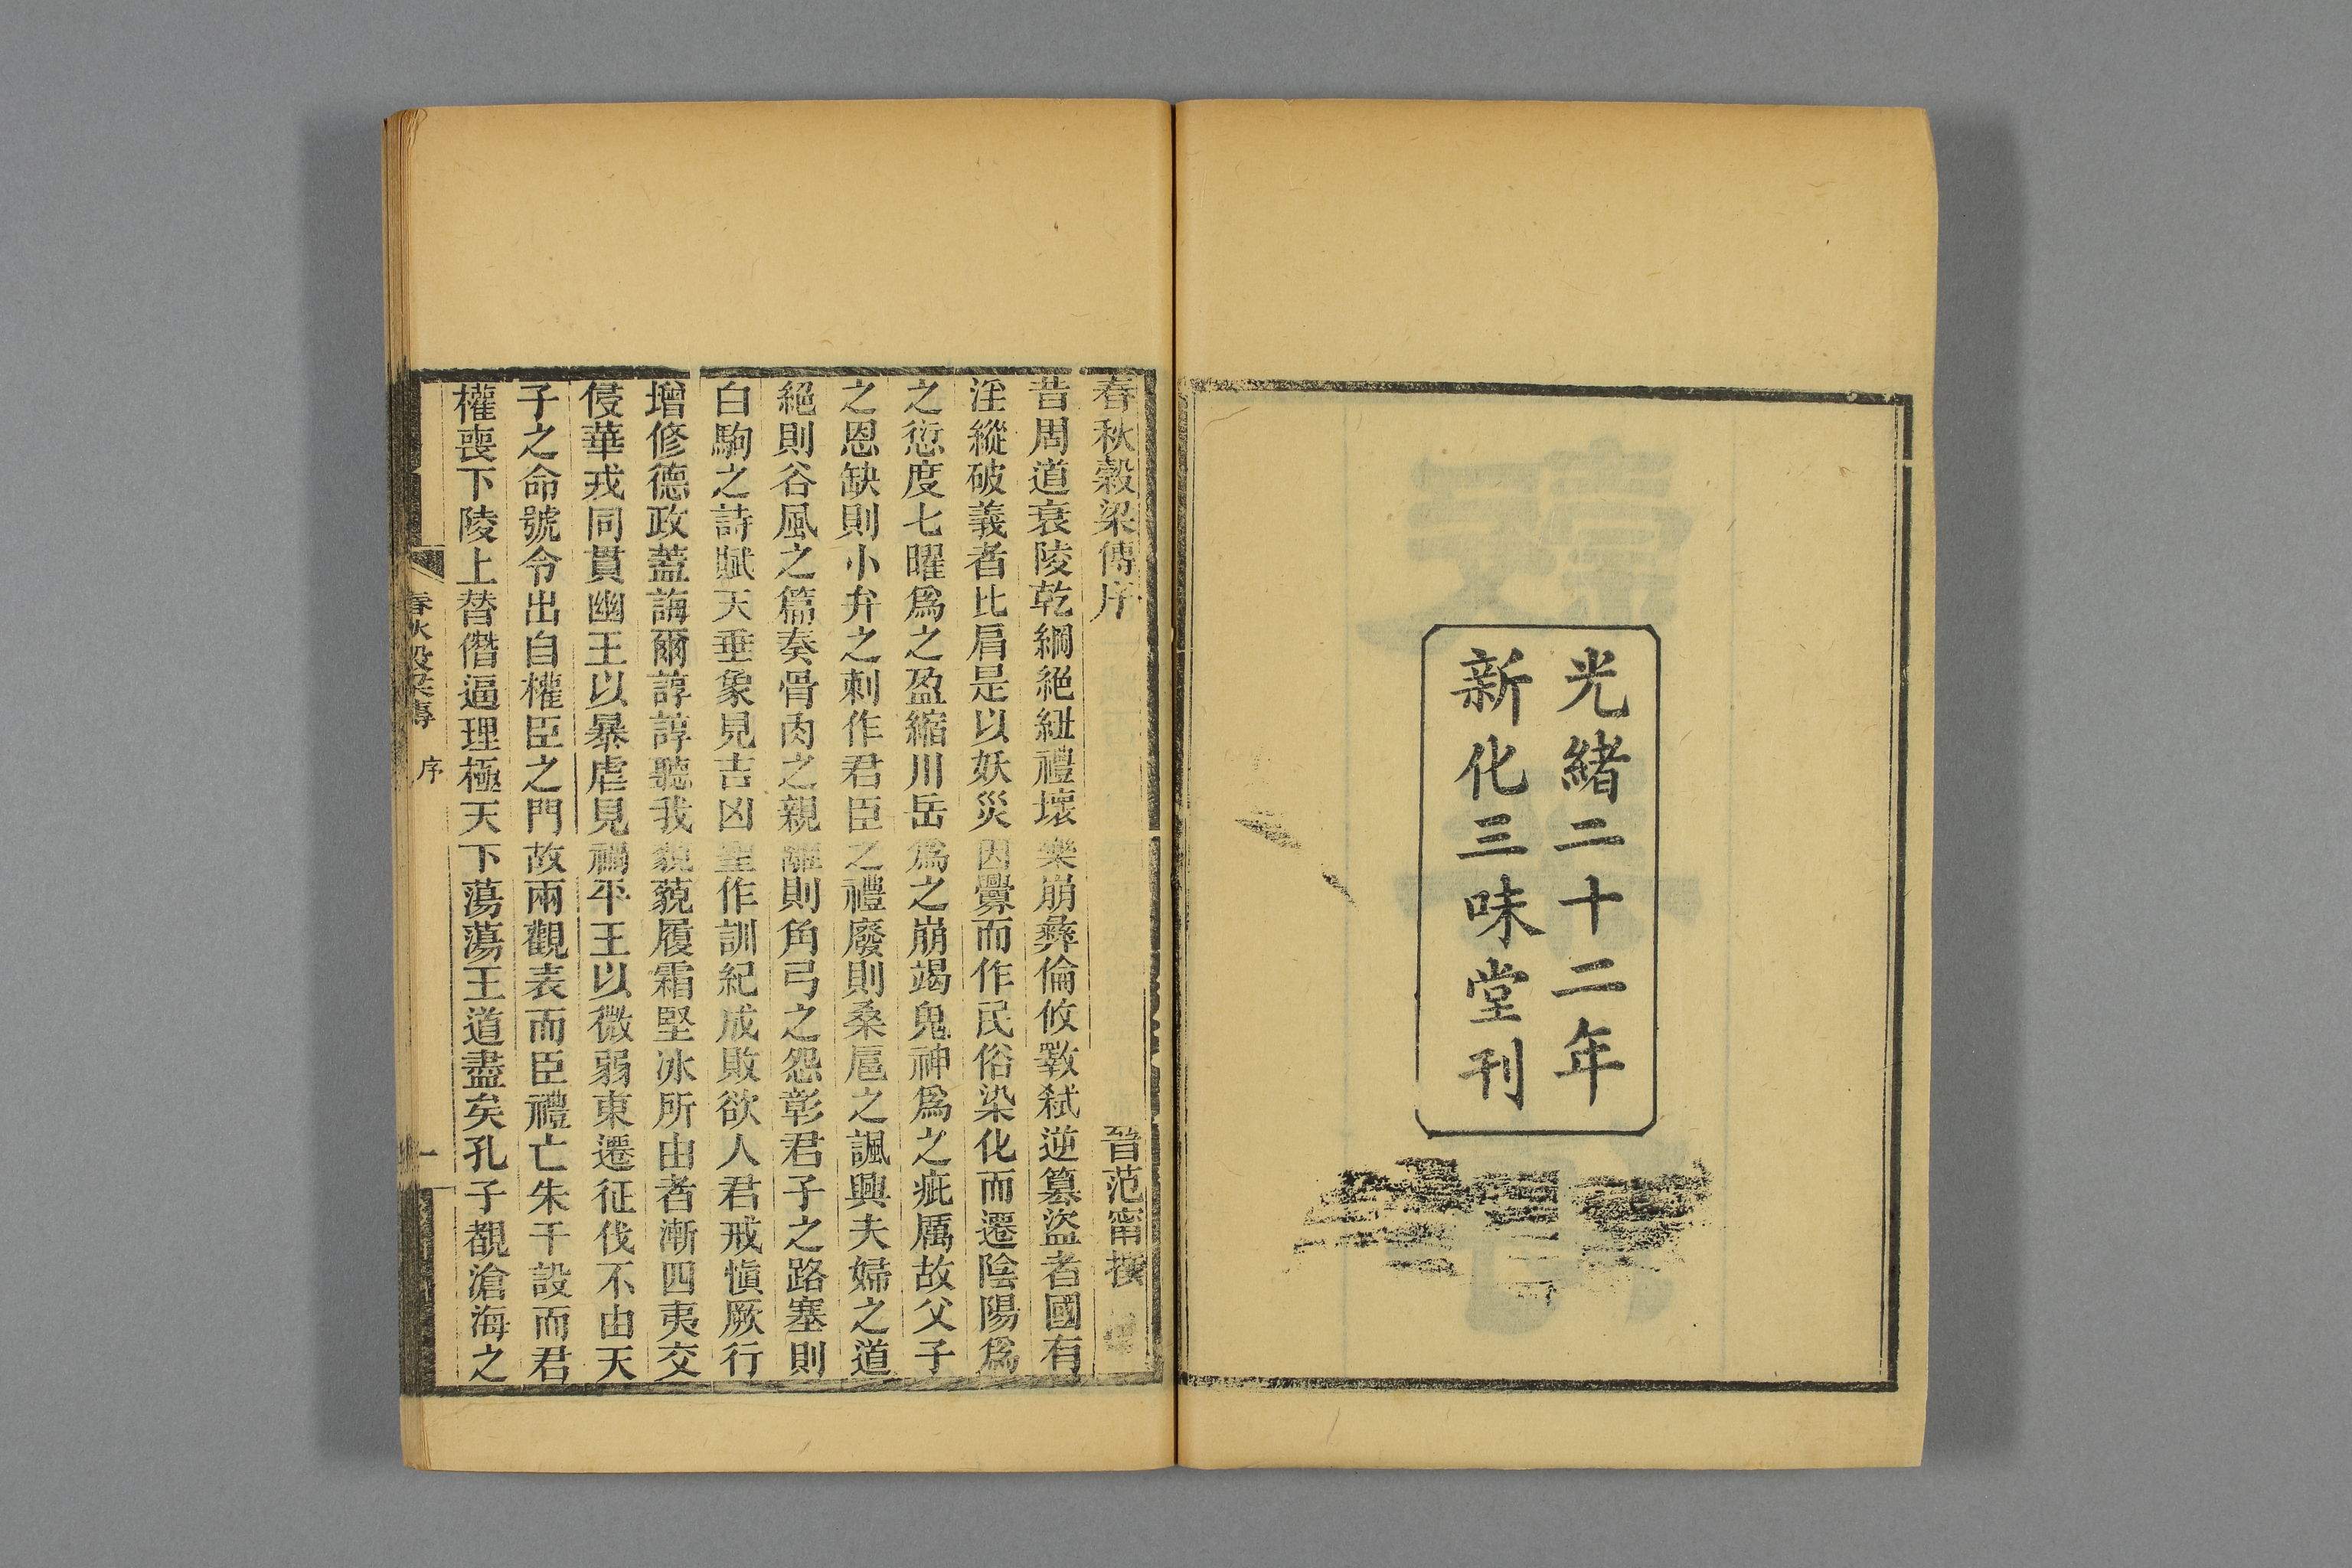 光緒二十二年
新化三味堂刊
春秋穀梁傳序
晉范甯撰
昔周道衰陵乾綱絕紐禮壞樂崩彝倫攸斁弒逆篡盜者國有
淫縱破義者比肩是以妖災因釁而作民俗染化而遷陰陽爲
之愆度七曜爲之盈縮川岳爲之崩竭鬼神爲之疵厲故父子
之恩缺則小弁之刺作君臣之禮廢則桑扈之諷興夫婦之道
絕則谷風之篇奏骨肉之親離則角弓之怨彰君子之路塞則
白駒之詩賦天垂象見吉凶聖作訓紀成敗欲人君戒愼厥行
增修德政蓋誨爾諄諄聽我藐藐履霜堅冰所由者漸四夷交
侵華戎同貫幽王以暴虐見禍平王以微弱東遷征伐不由天
子之命號令出自權臣之門故兩觀表而臣禮亡朱干設而君
權喪下陵上替僭逼理極天下蕩蕩王道盡矣孔子覩滄海之
春秋穀梁傳 序 一